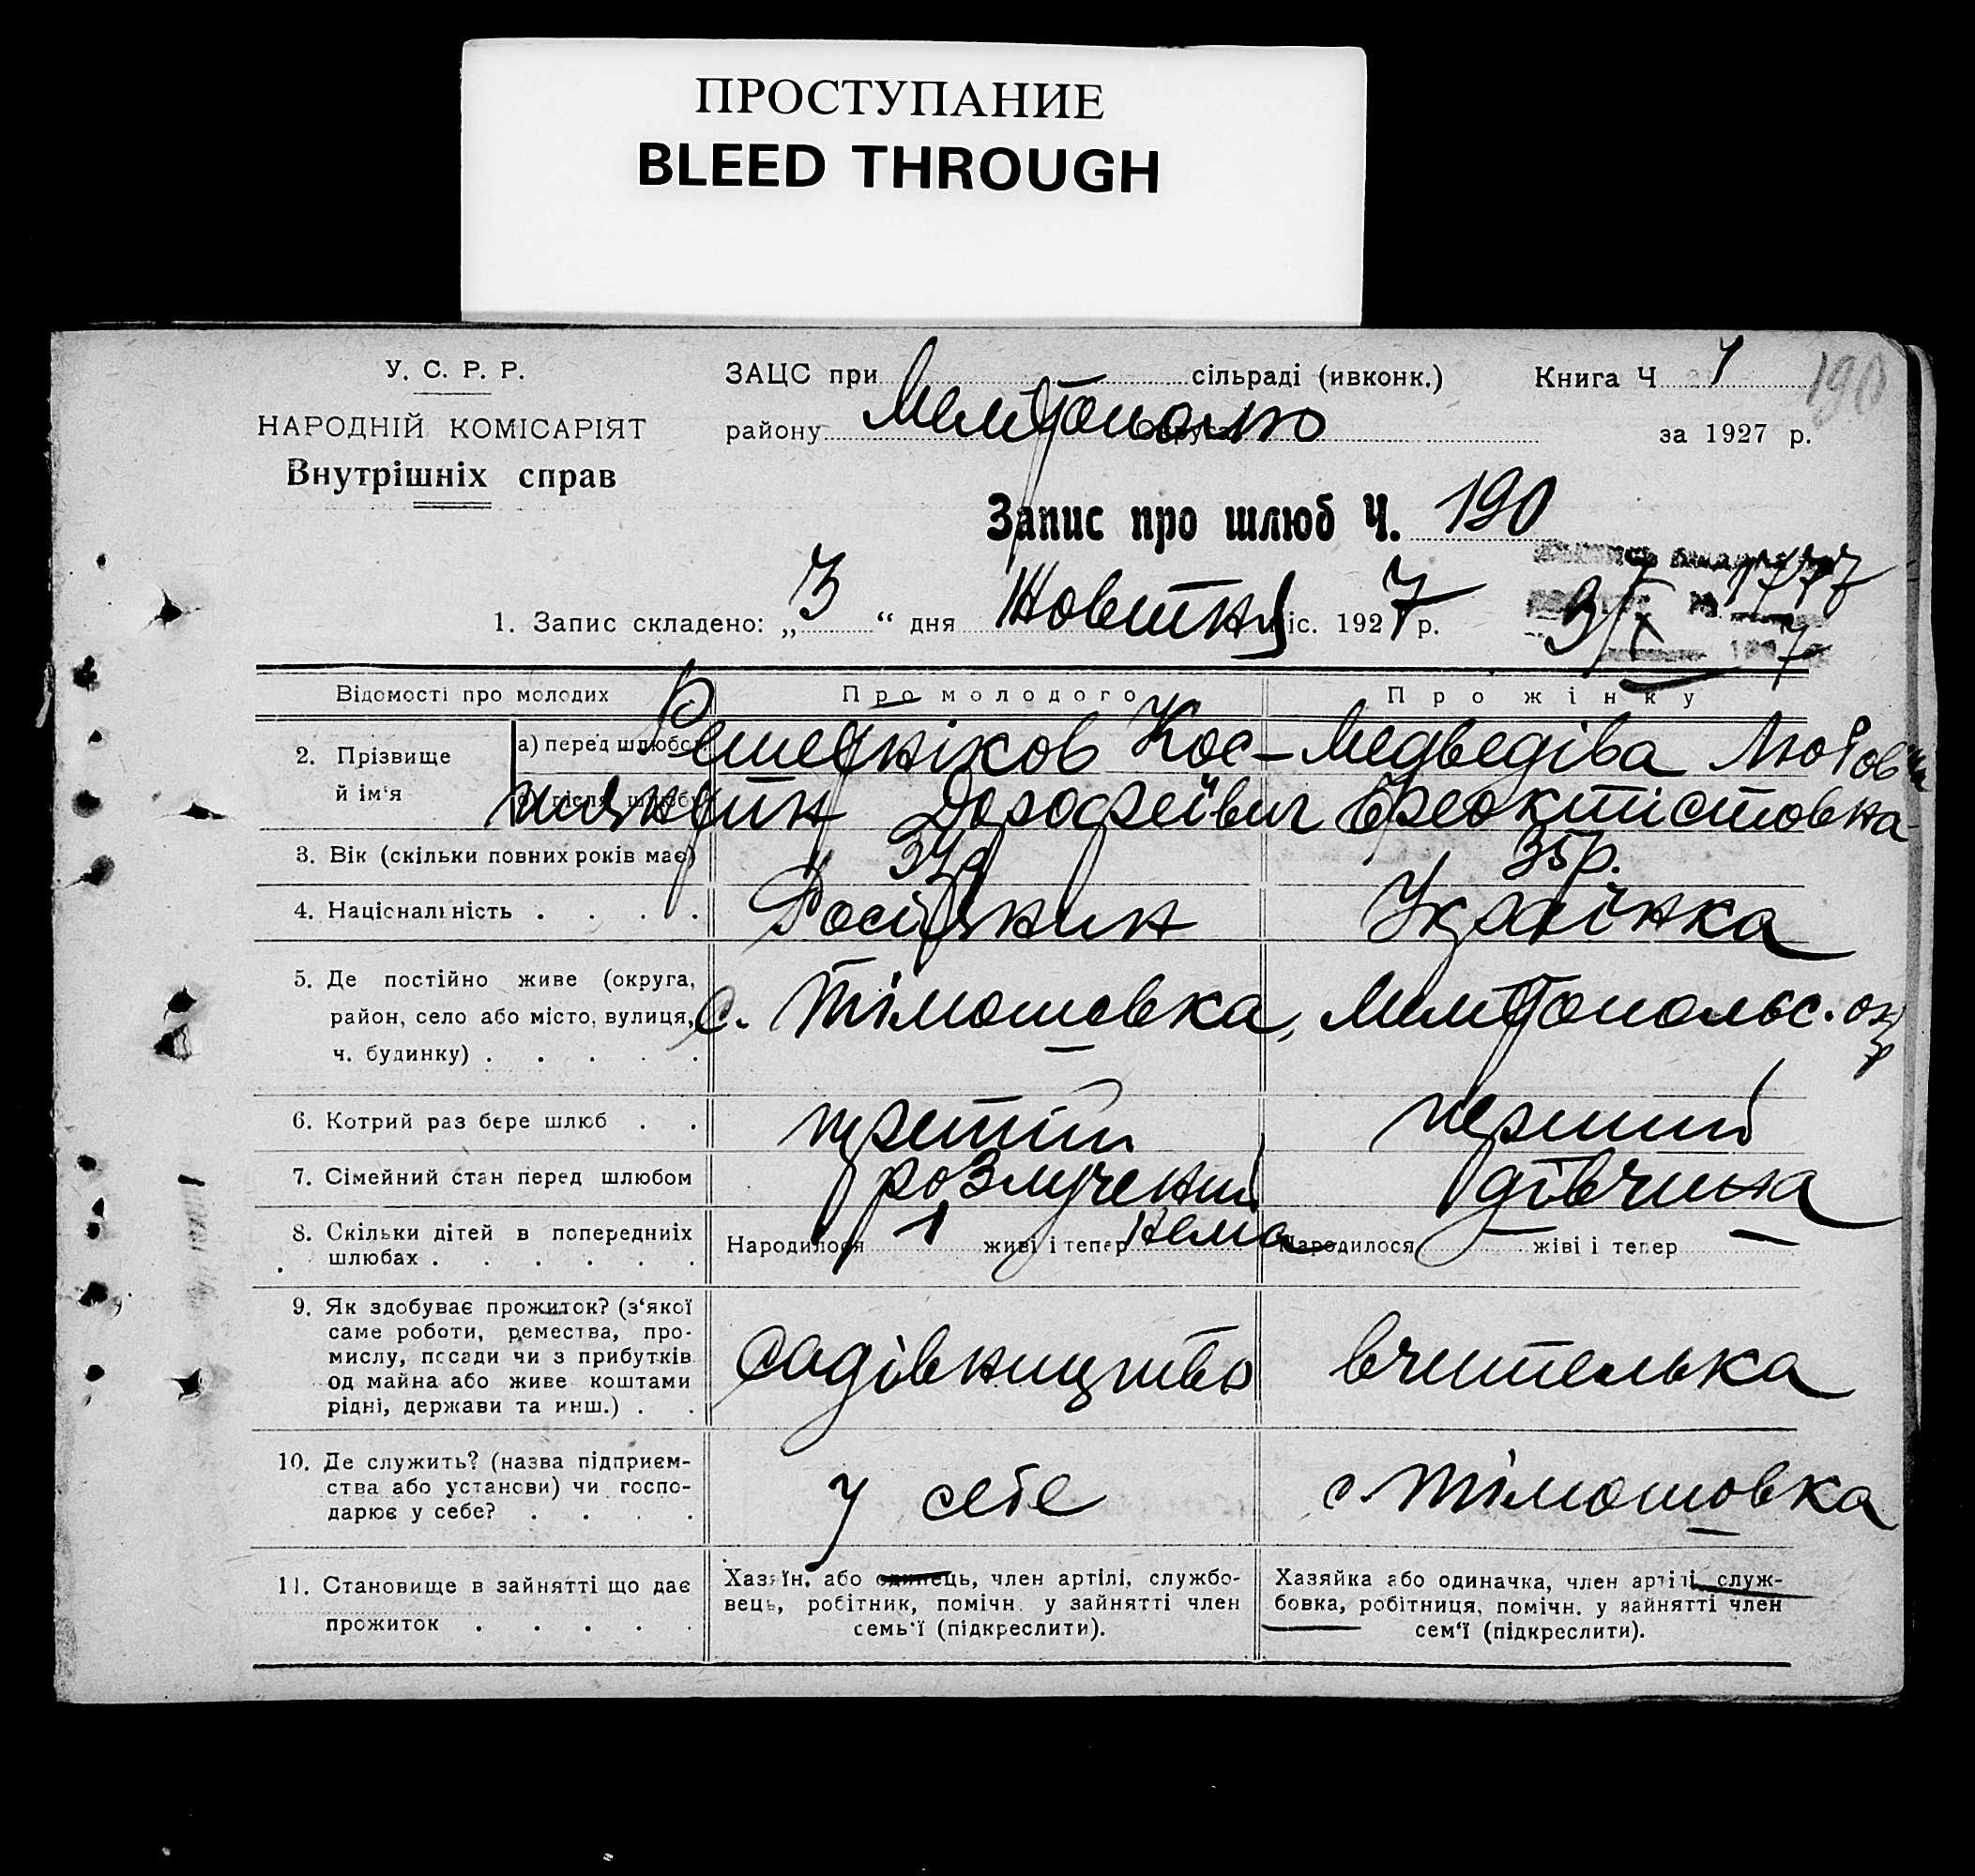 ПРОСТУПАНИЕ
BLEED THROUGH
У. С. Р. Р.
НАРОДНІЙ КОМІСАРІЯТ
Внутрішніх справ
ЗАЦС при сільраді (ивконк.) Книга Ч 7 190
району Мелітополю за 1927 р.
Запис про шлюб Ч. 190
1. Запис складено: „ 3 “ дня Жовтня міс. 1927 р.
Відомості про молодих Про молодого Про жінку
2. Прізвище й ім'я а) перед шлюбом Решетніков Кос- Медведіва Любов
б) після шлюбу Дорофеївич Феоктістовна
3. Вік (скільки повних років має) 35 р.
4. Національність . . . . Росіянин Українка
5. Де постійно живе (округа,
район, село або місто, вулиця,
ч. будинку) . . . . . с. Тімошовка, Мелітопольс. окр
6. Котрий раз бере шлюб . . третій перший
7. Сімейний стан перед шлюбом розлучений дівчина
8. Скільки дітей в попередніх
шлюбах . . . . . . Народилося 1 живі і тепер нема Народилося — живі і тепер —
9. Як здобуває прожиток? (з'якої
саме роботи, ремества, про-
мислу, посади чи з прибутків
од майна або живе коштами
рідні, держави та инш.) . . садівництво вчителька
10. Де служить? (назва підприєм-
ства або установи) чи госпо-
дарює у себе? . . . . у себе с. Тімошовка
11. Становище в зайнятті що дає
прожиток . . . . .
Хазяїн, або одинець, член артілі, службо-
вець, робітник, помічн. у зайнятті член
семь'ї (підкреслити).
Хазяйка або одиначка, член артілі, служ-
бовка, робітниця, помічн. у зайнятті член
сем'ї (підкреслити).